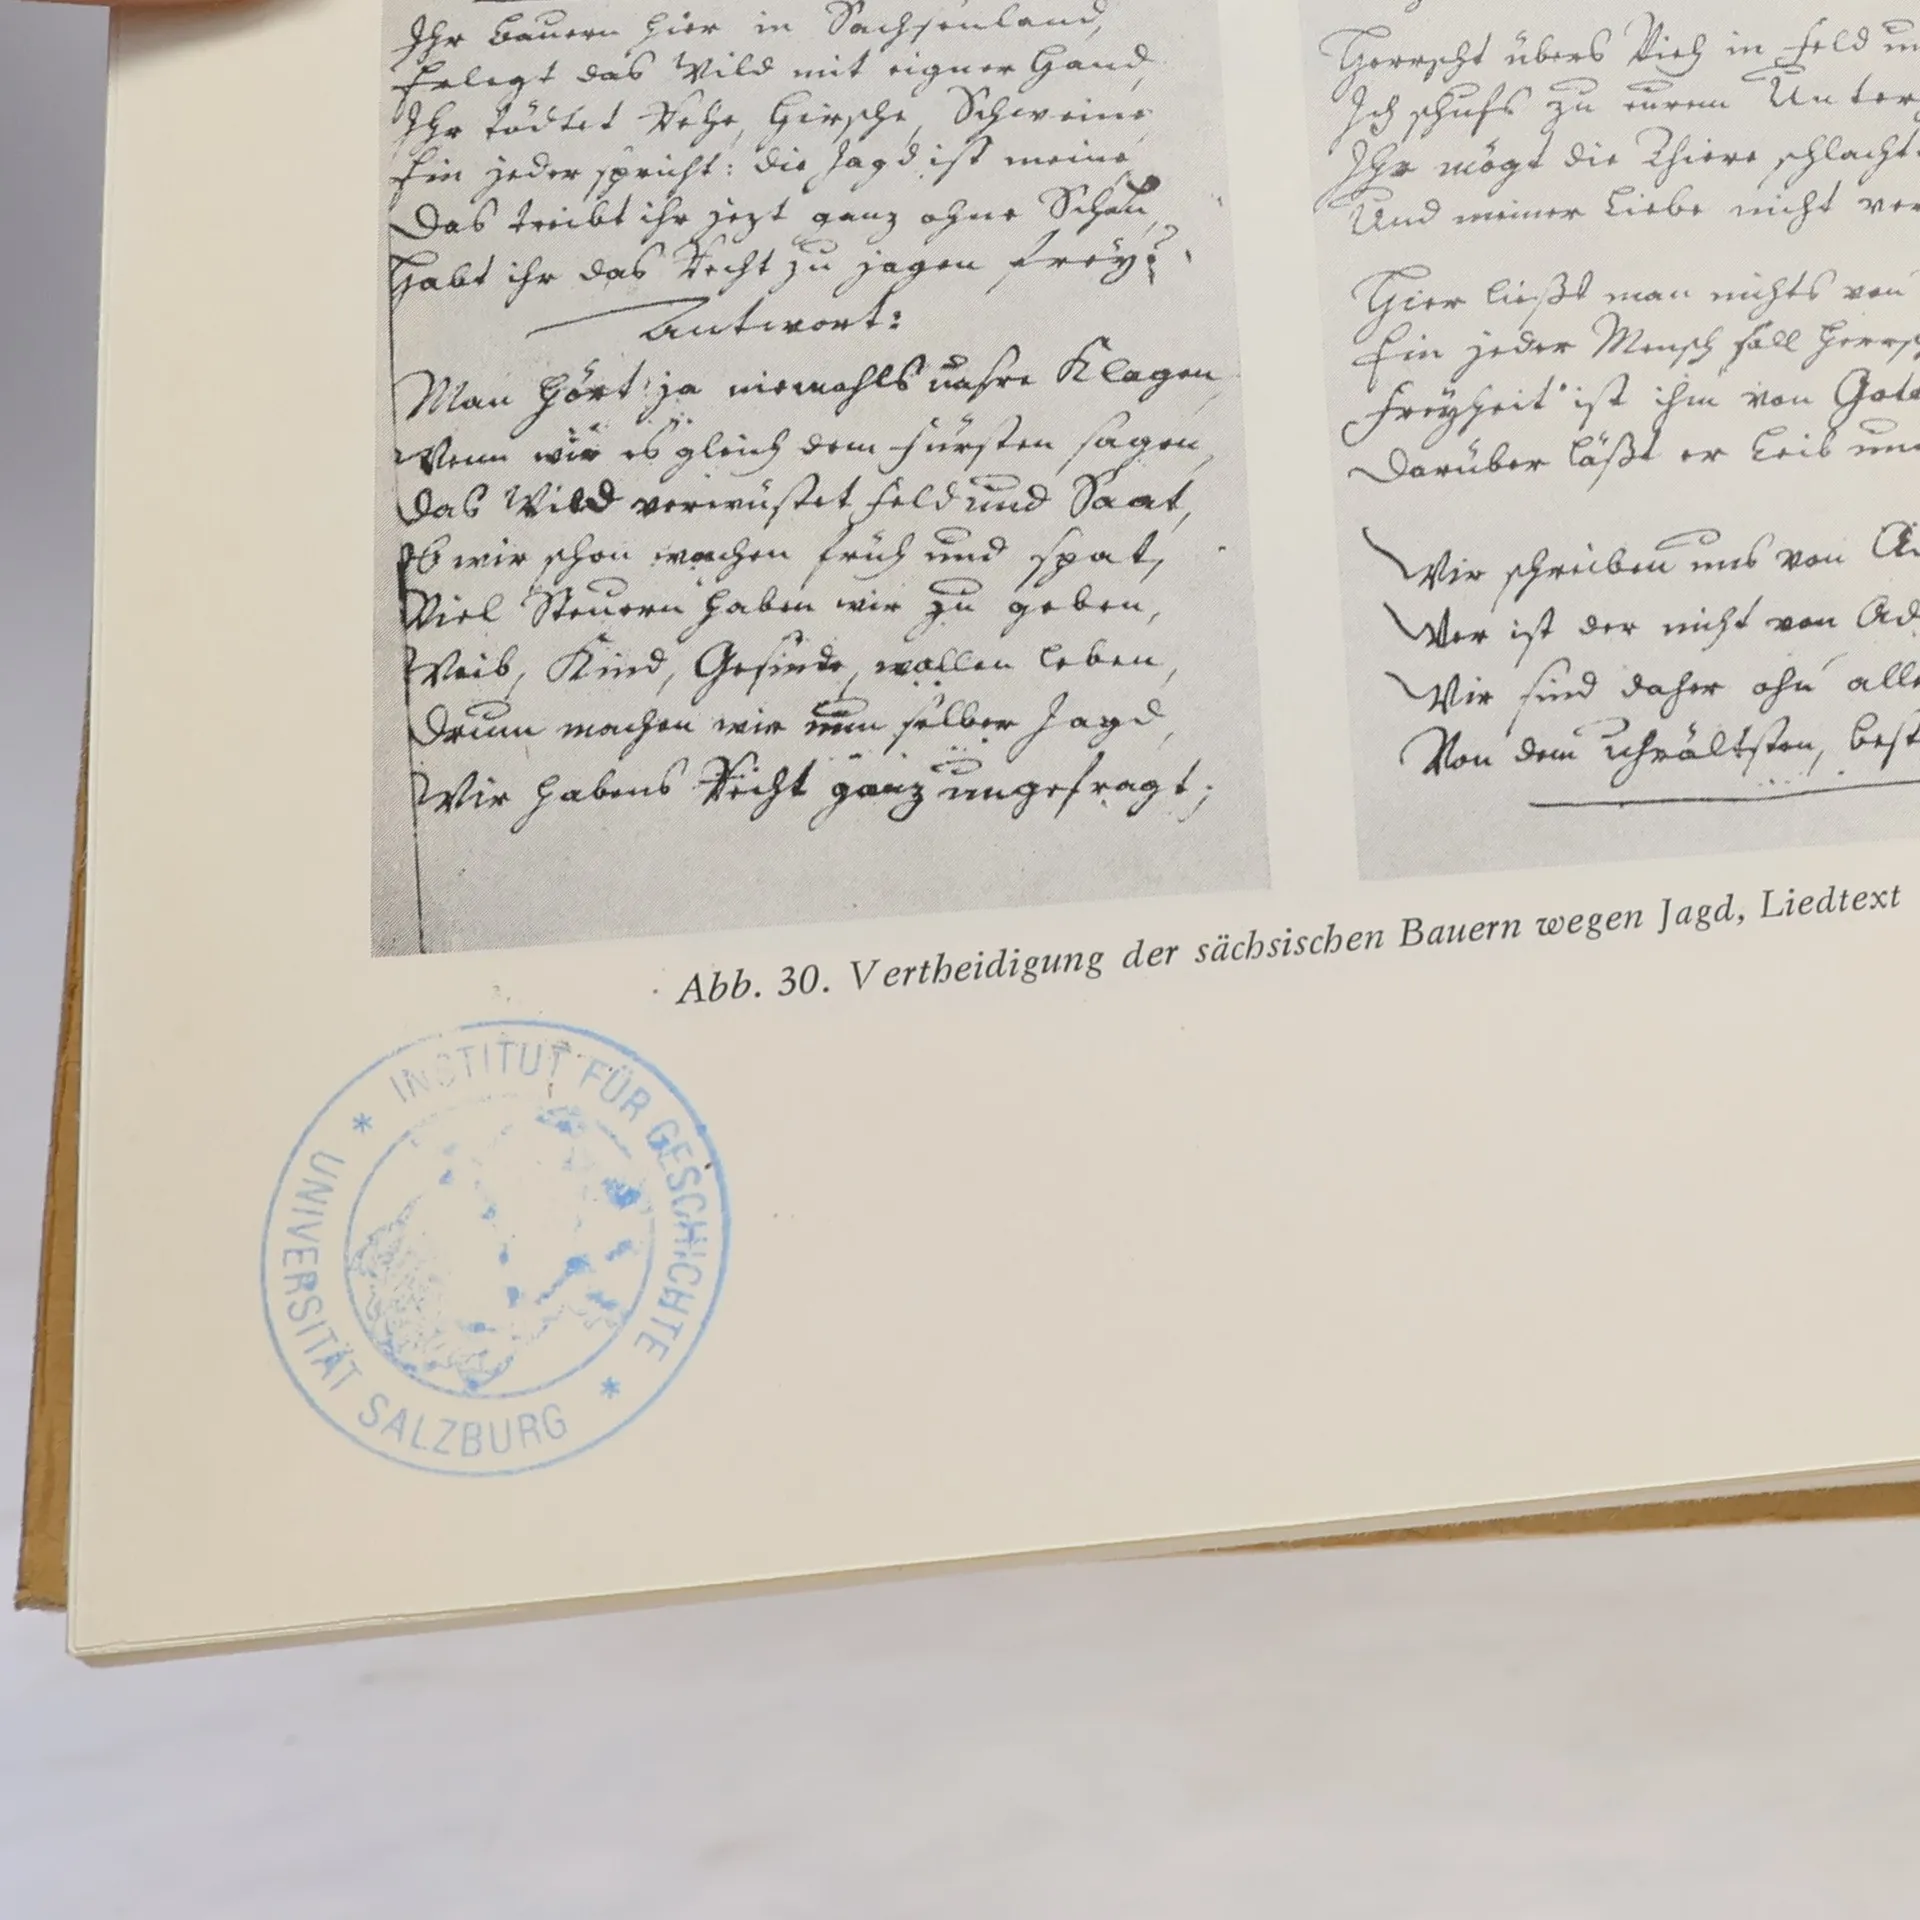 Ihr Bauern hier in Sachsenland,
Erlegt das Wild mit eigner Hand,
Ihr tödtet Rehe, Hirsche, Schweine,
Ein jeder spricht: die Jagd ist meine,
Das treibt ihr jezt ganz ohne Scheu,
Habt ihr das Recht zu jagen frey?
Antwort:
Man hört ja niemahls unsre Klagen,
Wenn wir es gleich dem Fürsten sagen,
Das Wild verwüstet Feld und Saat,
Ob wir schon wachen früh und spat,
Viel Steuern haben wir zu geben,
Weib, Kind, Gesinde, wollen leben,
Drum machen wir nun selber Jagd,
Wir habens Recht ganz ungefragt;
Herrscht übers Vieh in Feld
Ich schufs zu eurem
Ihr mögt die Thiere
Und meiner Liebe nicht
Hier ließt man nichts von
Ein jeder Mensch soll
Freyheit ist ihm von
Darüber läßt er Leib
Wir schreiben uns von
Wer ist der nicht von
Wir sind daher ohn
Von dem uhrältsten,
Abb. 30. Vertheidigung der sächsischen Bauern wegen Jagd, Liedtext
* INSTITUT FÜR GESCHICHTE *
UNIVERSITÄT SALZBURG